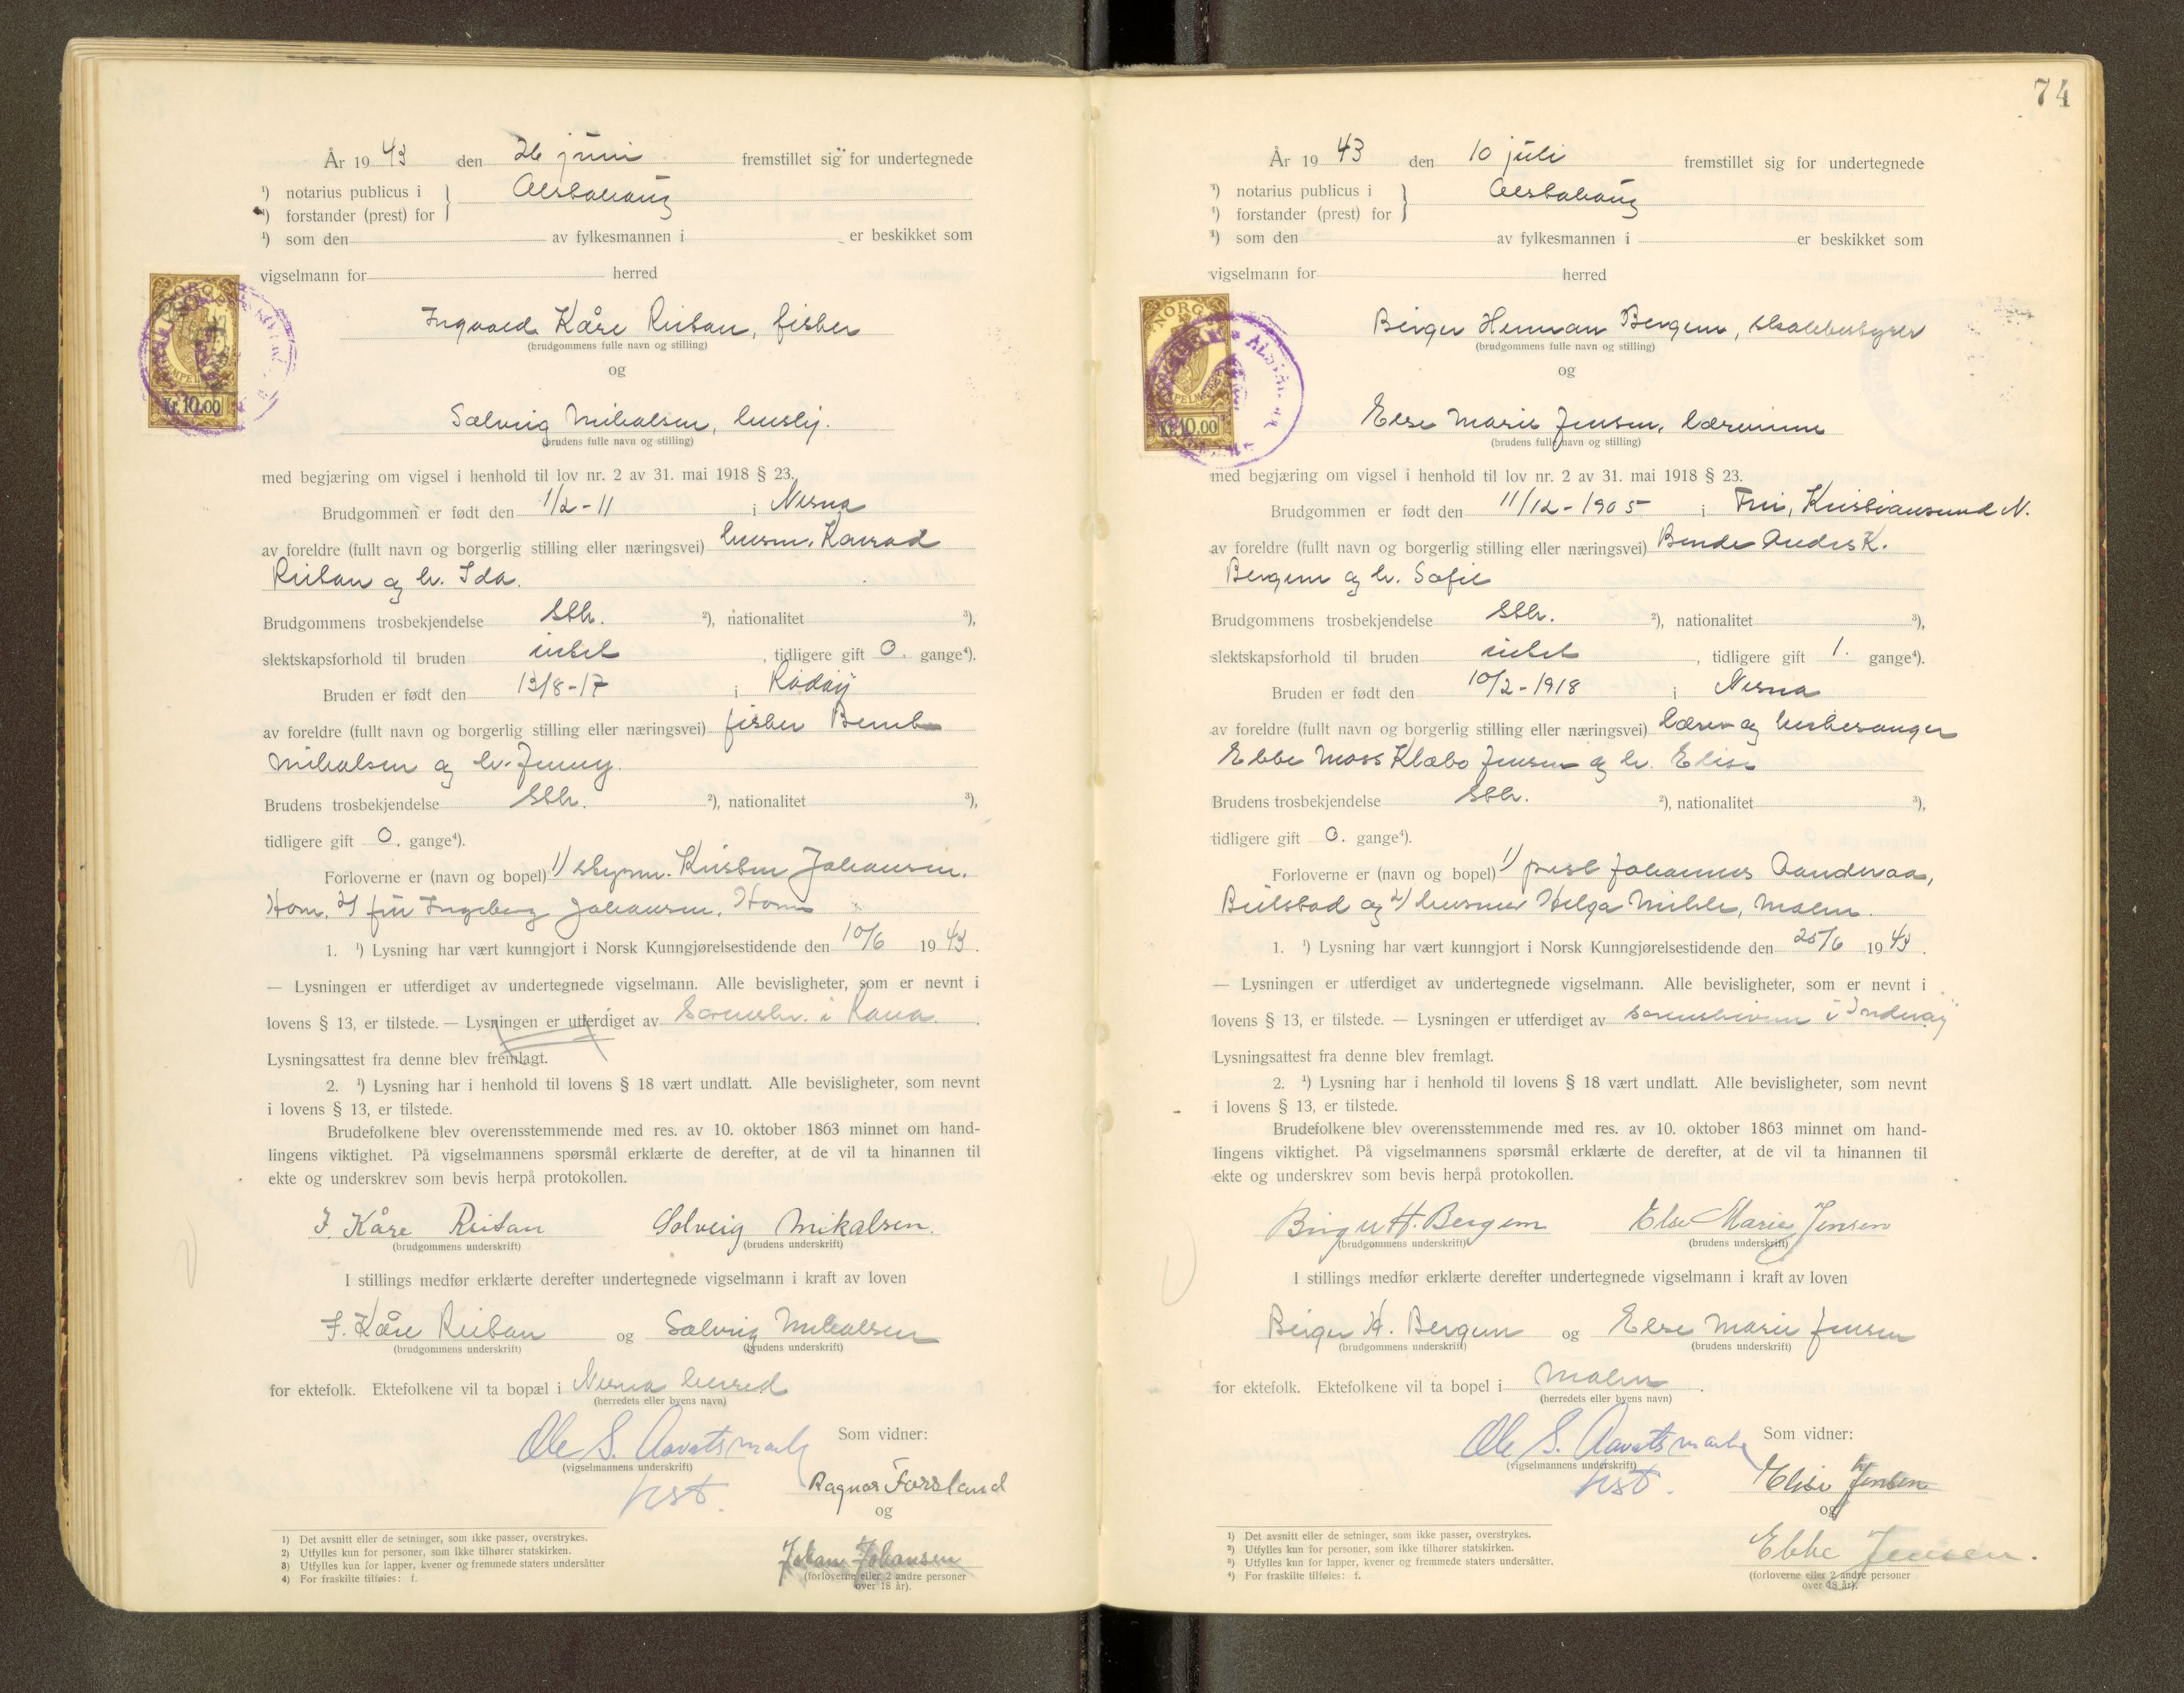 År 1943 den 26 juni fremstillet sig for undertegnede
¹) notarius publicus i
¹) forstander (prest) for } Alstahaug
¹) som den av fylkesmannen i er beskikket som
vigselmann for herred
NORGE
Kr. 10.00
Ingvald Kåre Reitan, fisker
(brudgommens fulle navn og stilling)
og
Solveig Mikalsen, huslig.
(brudens fulle navn og stilling)
med begjæring om vigsel i henhold til lov nr. 2 av 31. mai 1918 § 23.
Brudgommen er født den 1/2-11 i Nesna
av foreldre (fullt navn og borgerlig stilling eller næringsvei) husm. Konrad
Reitan og h. Ida.
Brudgommens trosbekjendelse stk. ²), nationalitet ³),
slektskapsforhold til bruden intet, tidligere gift 0. gange⁴).
Bruden er født den 13/8-17 i Rødøy
av foreldre (fullt navn og borgerlig stilling eller næringsvei) fisker Bernt
Mikalsen og h. Jenny.
Brudens trosbekjendelse stk. ²), nationalitet ³),
tidligere gift 0. gange⁴).
Forloverne er (navn og bopel) 1) styrm. Johansen.
2) fru Ingeborg Johansen,
1. ¹) Lysning har vært kunngjort i Norsk Kunngjørelsestidende den 10/6 1943.
— Lysningen er utferdiget av undertegnede vigselmann. Alle bevisligheter, som er nevnt i
lovens § 13, er tilstede. — Lysningen er utferdiget av Sorenskr. i Rana.
Lysningsattest fra denne blev fremlagt.
2. ¹) Lysning har i henhold til lovens § 18 vært undlatt. Alle bevisligheter, som nevnt
i lovens § 13, er tilstede.
Brudefolkene blev overensstemmende med res. av 10. oktober 1863 minnet om hand-
lingens viktighet. På vigselmannens spørsmål erklærte de derefter, at de vil ta hinannen til
ekte og underskrev som bevis herpå protokollen.
I. Kåre Reitan Solveig Mikalsen.
(brudgommens underskrift) (brudens underskrift)
I stillings medfør erklærte derefter undertegnede vigselmann i kraft av loven
I. Kåre Reitan og Solveig Mikalsen
(brudgommens underskrift) (brudens underskrift)
for ektefolk. Ektefolkene vil ta bopæl i Nesna herred
(herredets eller byens navn)
Ole S. Aavatsmark
(vigselmannens underskrift)
kst.
Som vidner:
Ragnar Forsland
og
Johan Johansen
(forloverne eller 2 andre personer
over 18 år).
1) Det avsnitt eller de setninger, som ikke passer, overstrykes.
2) Utfylles kun for personer, som ikke tilhører statskirken.
3) Utfylles kun for lapper, kvener og fremmede staters undersåtter
4) For fraskilte tilføies: f.
74
År 1943 den 10 juli fremstillet sig for undertegnede
¹) notarius publicus i
¹) forstander (prest) for } Alstahaug
¹) som den av fylkesmannen i er beskikket som
vigselmann for herred
NORGE
Kr. 10.00
Birger Herman Bergem, skattestyrer
(brudgommens fulle navn og stilling)
og
Else Marie Jensen, lærerinne
(brudens fulle navn og stilling)
med begjæring om vigsel i henhold til lov nr. 2 av 31. mai 1918 § 23.
Brudgommen er født den 11/12-1905 i Frei, Kristiansund N.
av foreldre (fullt navn og borgerlig stilling eller næringsvei) Bonde Anders K.
Bergem og h. Sofie
Brudgommens trosbekjendelse stk. ²), nationalitet ³),
slektskapsforhold til bruden intet, tidligere gift 1. gange⁴).
Bruden er født den 10/2-1918 i Nesna
av foreldre (fullt navn og borgerlig stilling eller næringsvei) lærer og kirkesanger
Ebbe Moss Klæbo Jensen og h. Elise
Brudens trosbekjendelse stk. ²), nationalitet ³),
tidligere gift 0. gange⁴).
Forloverne er (navn og bopel) 1) prest Johannes Aanderaa,
Beitstad og 2) husmor Helga Mikle, Malm.
1. ¹) Lysning har vært kunngjort i Norsk Kunngjørelsestidende den 25/6 1943.
— Lysningen er utferdiget av undertegnede vigselmann. Alle bevisligheter, som er nevnt i
lovens § 13, er tilstede. — Lysningen er utferdiget av sorenskriveren i Inderøy
Lysningsattest fra denne blev fremlagt.
2. ¹) Lysning har i henhold til lovens § 18 vært undlatt. Alle bevisligheter, som nevnt
i lovens § 13, er tilstede.
Brudefolkene blev overensstemmende med res. av 10. oktober 1863 minnet om hand-
lingens viktighet. På vigselmannens spørsmål erklærte de derefter, at de vil ta hinannen til
ekte og underskrev som bevis herpå protokollen.
Birger H. Bergem Else Marie Jensen
(brudgommens underskrift) (brudens underskrift)
I stillings medfør erklærte derefter undertegnede vigselmann i kraft av loven
Birger H. Bergem og Else Marie Jensen
(brudgommens underskrift) (brudens underskrift)
for ektefolk. Ektefolkene vil ta bopel i Malm.
(herredets eller byens navn)
Ole S. Aavatsmark
(vigselmannens underskrift)
kst.
Som vidner:
Elise Jensen
og
Ebbe Jensen.
(forloverne eller 2 andre personer
over 18 år).
¹) Det avsnitt eller de setninger, som ikke passer, overstrykes.
²) Utfylles kun for personer, som ikke tilhører statskirken.
³) Utfylles kun for lapper, kvener og fremmede staters undersåtter.
⁴) For fraskilte tilføies: f.